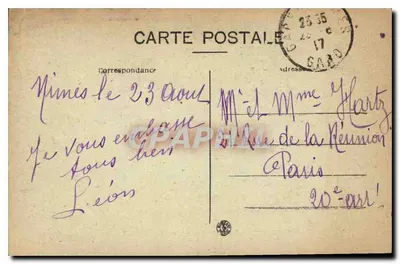 CARTE POSTALE
Correspondance
Adresse
23 35
17
GARD
Nimes le 23 Aout
Je vous embrasse
tous bien
Léon
Mr et Mme Hartz
Rue de la Réunion
Paris
20e arrt
CPAPHIL